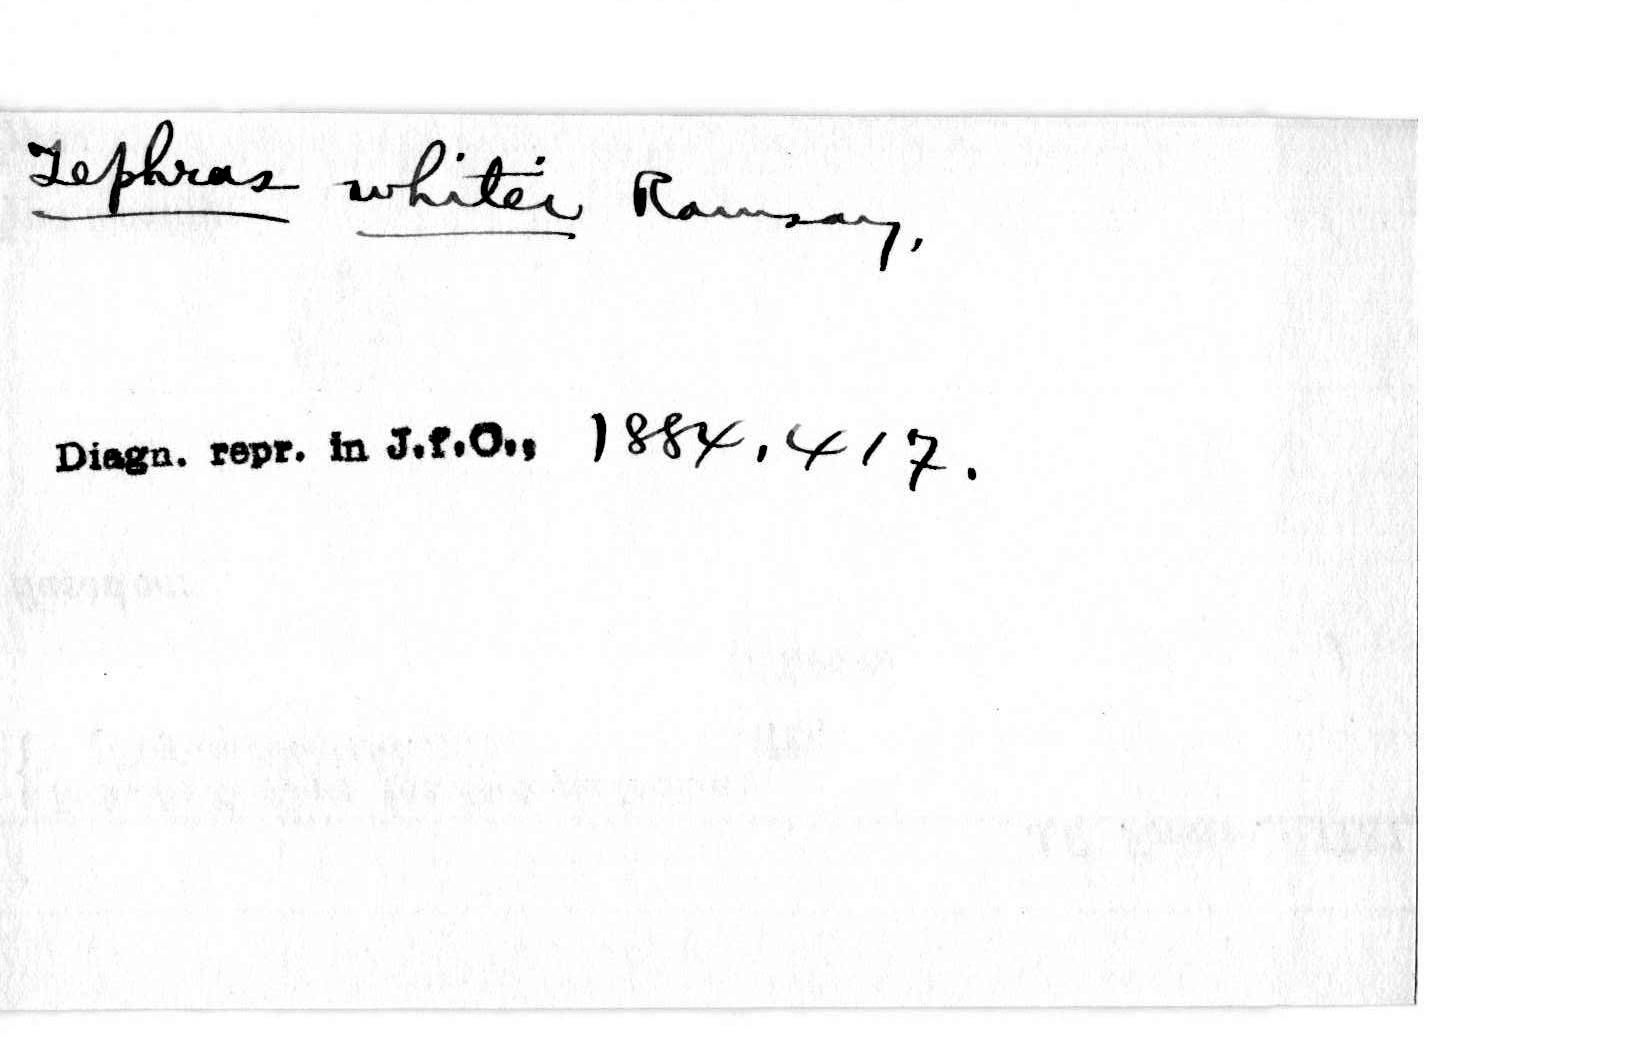 Tephras whitei Ramsay,
Diagn. repr. in J.f.O., 1884, 417.